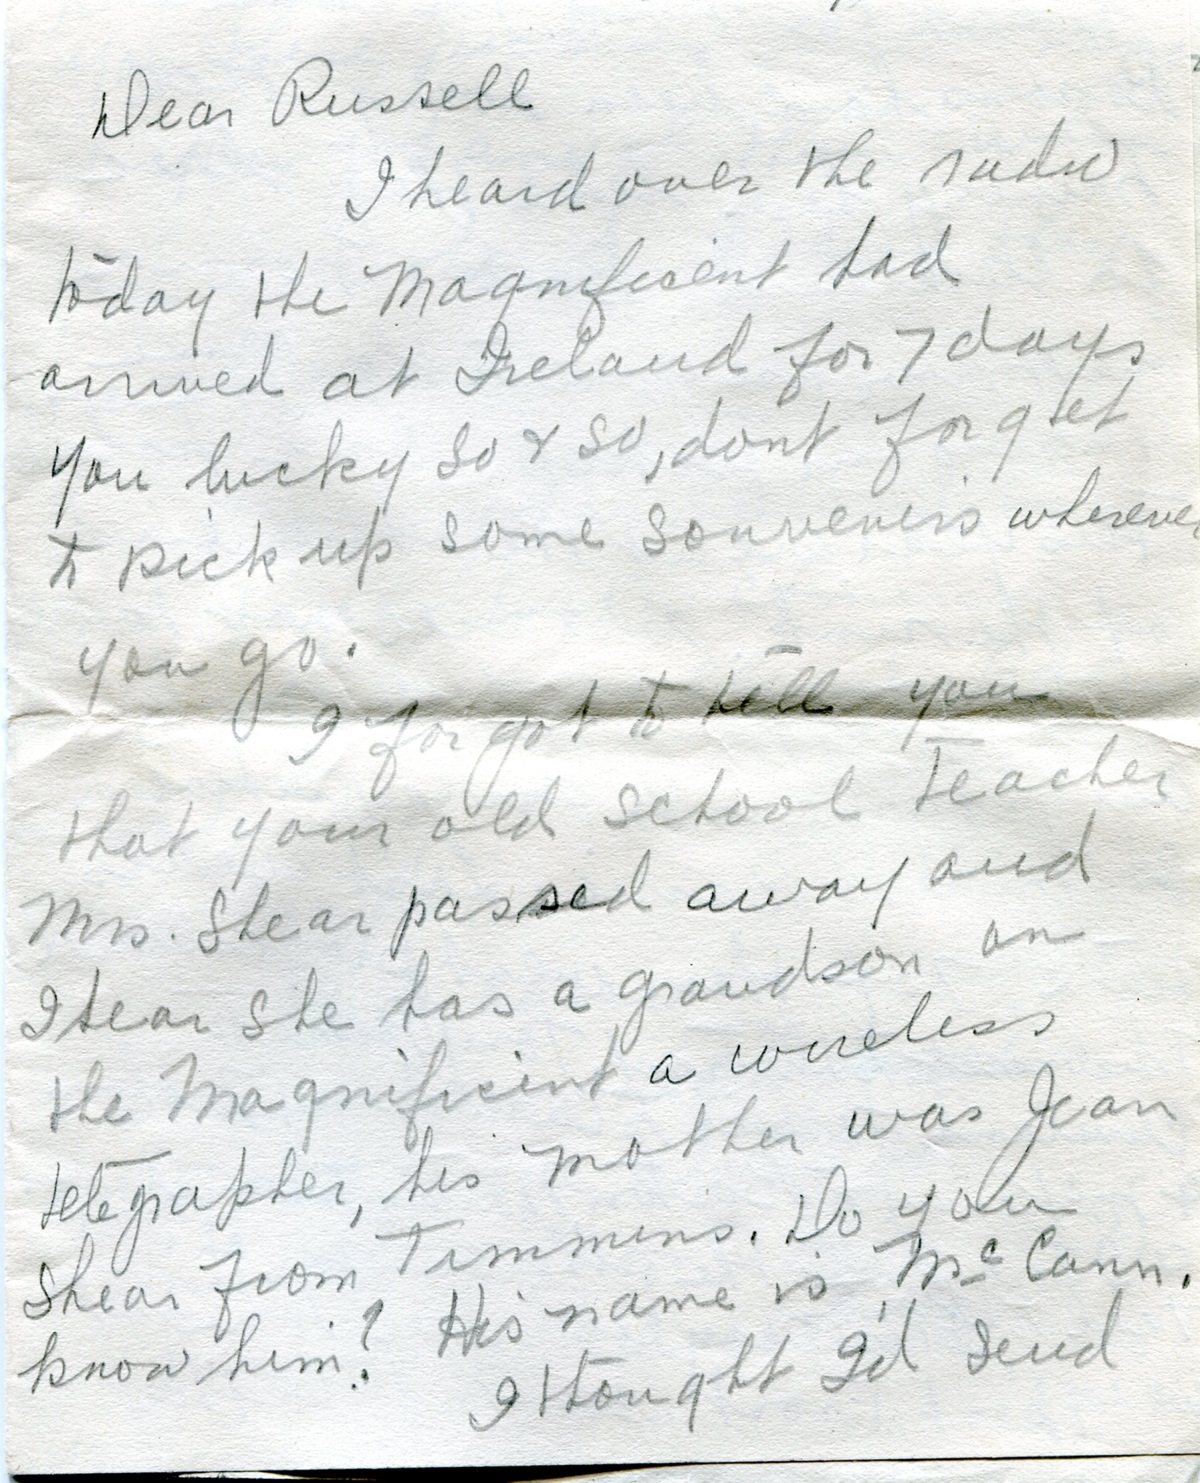 Dear Russell
I heard over the radio
today the Magnificent had
arrived at Ireland for 7 days
you lucky so & so, dont forget
to pick up some souveneirs wherever
you go.
I forgot to tell you
that your old school teacher
Mrs. Shear passed away and
I hear she has a grandson on
the Magnificent a wireless
telegrapher, his mother was Jean
Shear from Timmins. Do you
know him? His name is McCann.
I thought I'd send